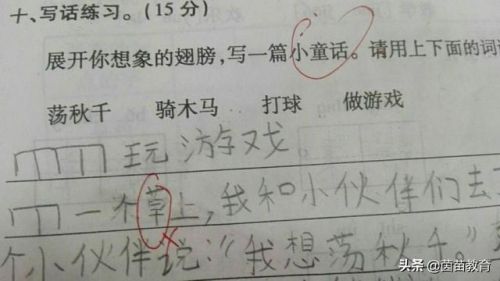 十、写话练习。(15 分)
展开你想象的翅膀,写一篇小童话。请用上下面的词
荡秋千 骑木马 打球 做游戏
玩游戏。
一个草上,我和小伙伴们去
个小伙伴说:“我想荡秋千。”
头条 @茵苗教育